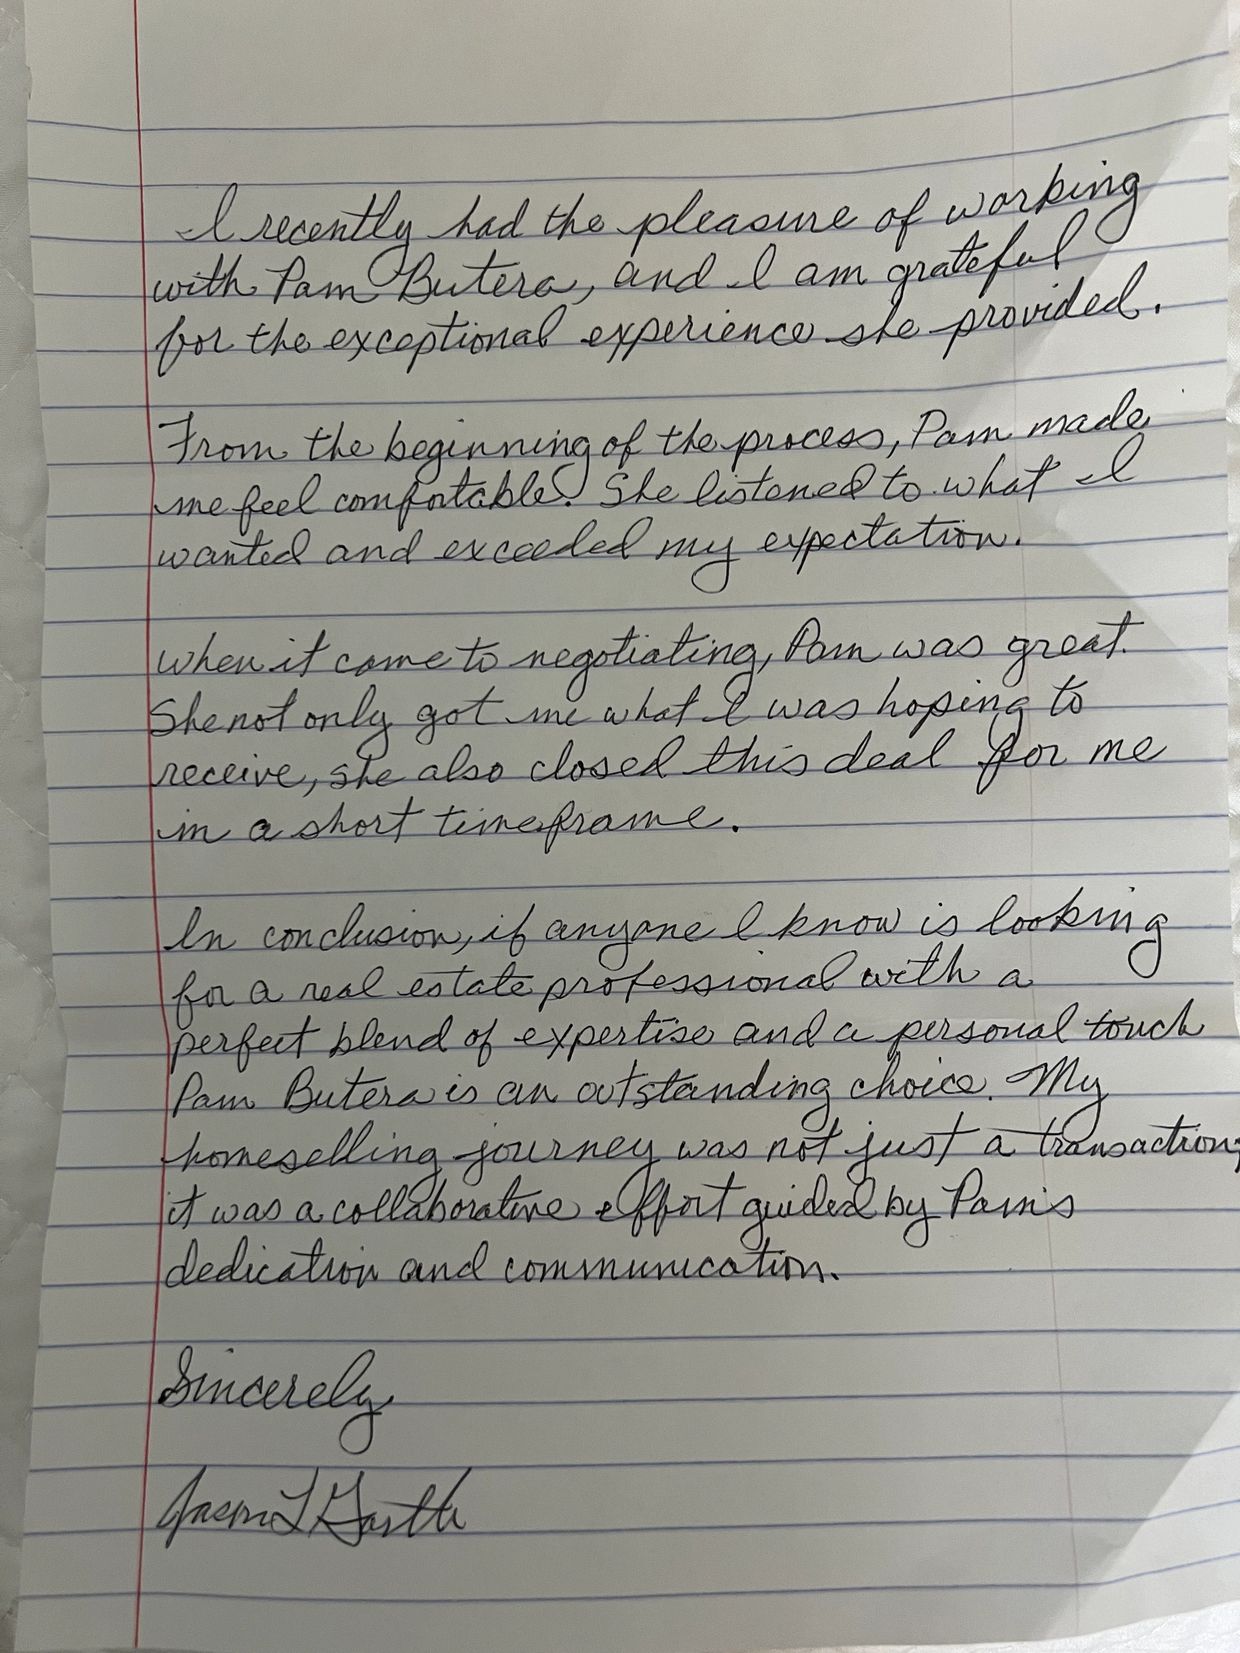 I recently had the pleasure of working
with Pam Butera, and I am grateful
for the exceptional experience she provided.
From the beginning of the process, Pam made
me feel comfortable. She listened to what I
wanted and exceeded my expectation.
When it came to negotiating, Pam was great.
She not only got me what I was hoping to
receive, she also closed this deal for me
in a short timeframe.
In conclusion, if anyone I know is looking
for a real estate professional with a
perfect blend of expertise and a personal touch
Pam Butera is an outstanding choice. My
homeselling journey was not just a transaction;
it was a collaborative effort guided by Pam's
dedication and communication.
Sincerely
Jason L